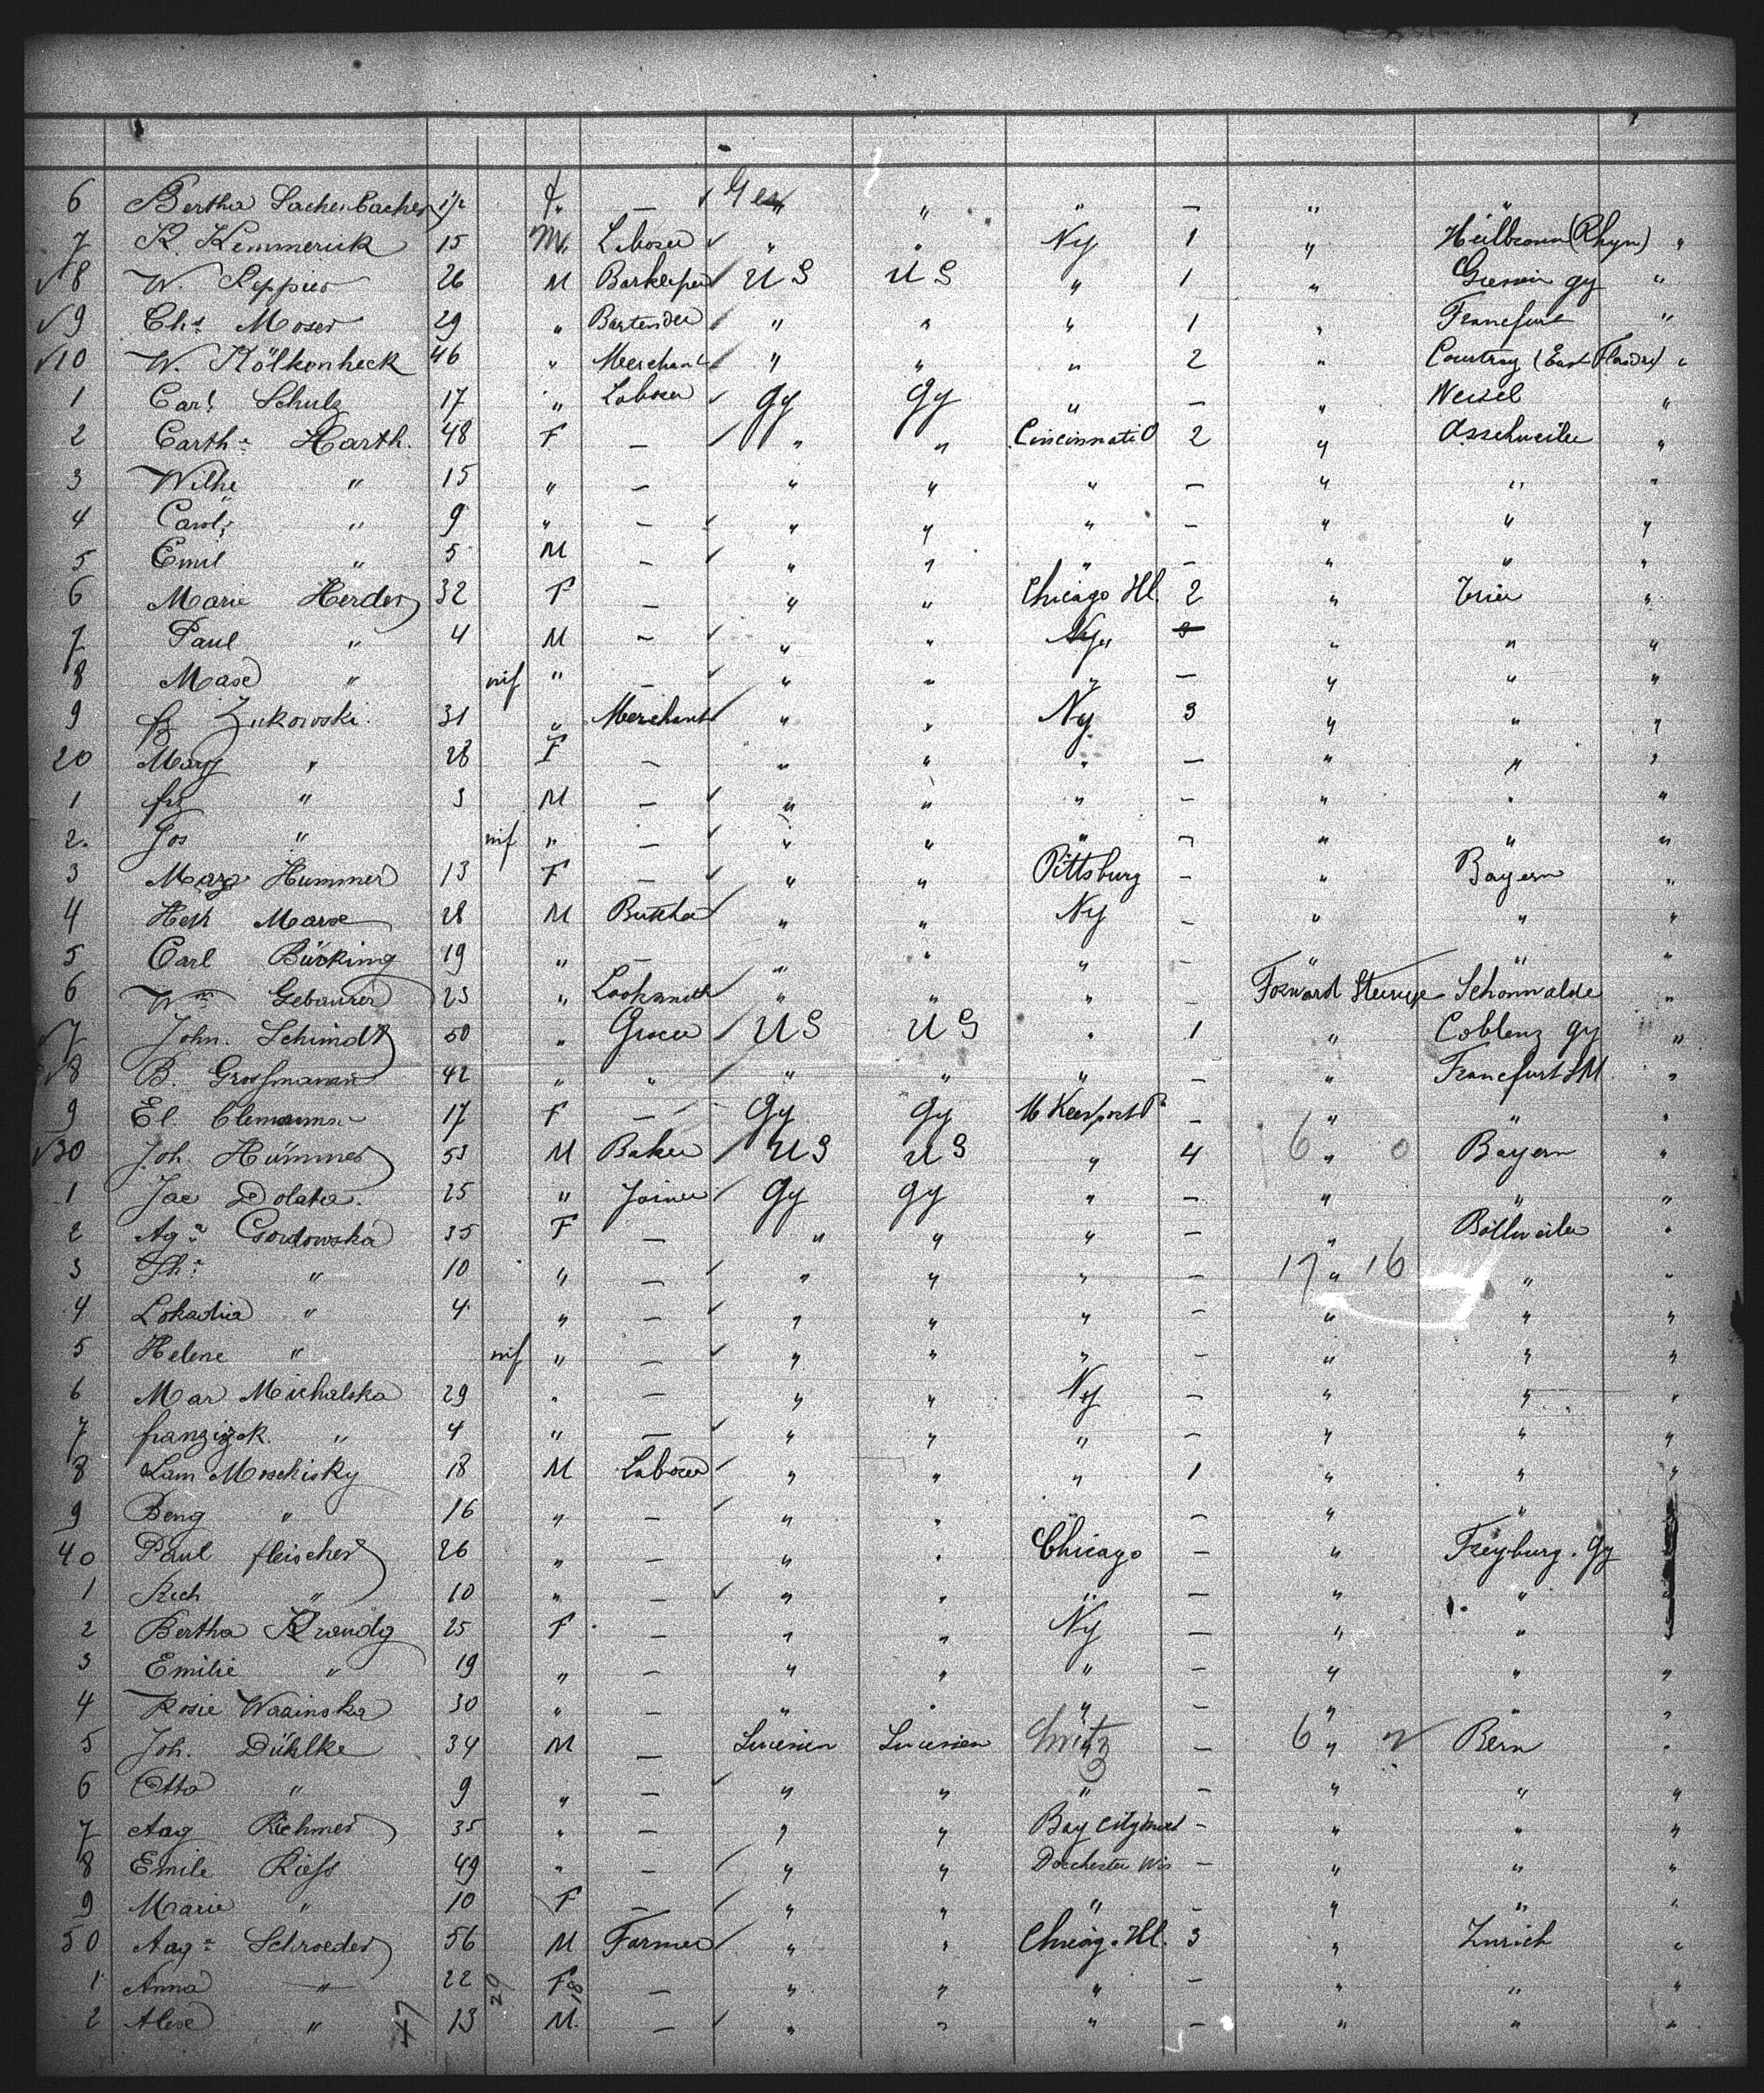 6 Bertha Sachenbacher 1/2 f. — Ger " " " — " "
7 K. Kemmerick 15 M. Laborer " " Ny 1 " Heilbronn (Rhyn) "
8 W. Peppies 26 M Barkeeper U S U S " 1 " gy "
9 Chs Moser 29 " Bartender " " " 1 " Francfurt "
10 W. Kölkenheck 46 " Merchant " " " 2 " Courtray (East Flandre) "
1 Carl Schulz 17 " Laborer Gy Gy " — " Weisel "
2 Cath.a Harth. 48 F — " " Cincinnati O 2 " Asschweiler "
3 Wilhe " 15 " — " " " — " " "
4 Carol " 9 " — " " " — " " "
5 Emil " 5 M — " " " — " " "
6 Marie Herder 32 F — " " Chicago Ill. 2 " Trier "
7 Paul " 4 M — " " Ny " 3 " " "
8 Max " inf " — " " " — " " "
9 Zukowski. 31 " Merchant " " Ny 3 " " "
20 Mary " 28 F — " " " — " " "
1 frz " 3 M — " " " — " " "
2. Jos " inf " — " " " — " " "
3 Marg. Hummer 13 F — " " Pittsburg — " Bayern "
4 Marx 28 M Butcher " " Ny — " " "
5 Carl Bücking 19 " — " " " — " " "
6 Wm Gebaurer 23 " Locksmith " " " — Forward Steerage Schonwalde "
7 John. Schimdt 50 " Grocer U S U S " 1 " Coblenz gy "
8 B. Grossmann 42 " " " " " — " Francfurt S/M "
9 El. Clemanns 17 F — Gy Gy Mc Keesport Pa — " " "
30 Joh. Hümmer 53 M Baker U S U S " 4 6 " 0 Bayern "
1 Jac Dolata. 25 " Joiner Gy Gy " — " " "
2 Aga Gordowska 35 F — " " " — " Bollweiler "
3 Th.a " 10 " — " " " — 17 " 16 " "
4 Lokadia " 4 " — " " " — " " "
5 Helene " inf " — " " " — " " "
6 Mar. Michalska 29 " — " " Ny — " " "
7 franziszk. " 4 " — " " " — " " "
8 Lam Moschisky 18 M Laborer " " " 1 " " "
9 Beng " 16 " — " " " — " " "
40 Paul fleischer 26 " — " " Chicago — " Freyburg. Gy "
1 Rich " 10 " — " " " — " " "
2 Bertha 25 F — " " Ny — " " "
3 Emilie " 19 " — " " " — " " "
4 Rosie Waainska 30 " — " " " — " " "
5 Joh. Dühlke 34 M — " — 6 " Bern "
6 Otto " 9 " — " " " — " " "
7 Aug Richmer 35 " — " " Bay City — " " "
8 Emile Riess 49 " — " " Dorchester Wis — " " "
9 Marie " 10 F — " " " — " " "
50 Augt Schroeder 56 M Farmer " " Chicag. Ill. 3 " Zurich "
1 Anna " 22 20 F 18 — " " " — " " "
2 Alexe " 47 13 M. — " " " — " " "